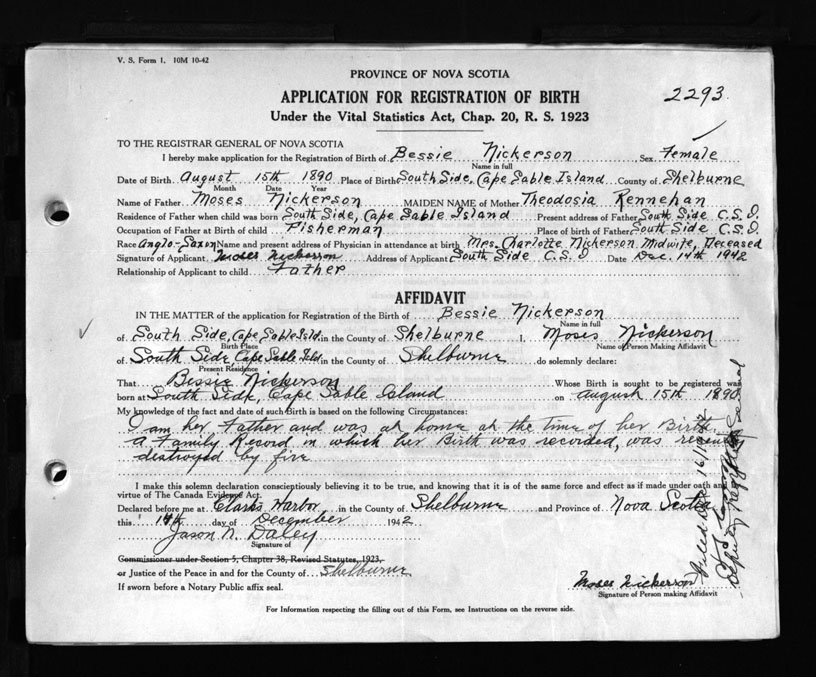 V. S. Form 1. 10M 10-42
PROVINCE OF NOVA SCOTIA
APPLICATION FOR REGISTRATION OF BIRTH
2293.
Under the Vital Statistics Act, Chap. 20, R. S. 1923
TO THE REGISTRAR GENERAL OF NOVA SCOTIA
I hereby make application for the Registration of Birth of Bessie Nickerson Sex Female
Name in full
Date of Birth August 15th 1890 Place of Birth South Side, Cape Sable Island County of Shelburne
Month Date Year
Name of Father Moses Nickerson MAIDEN NAME of Mother Theodosia Kennehan
Residence of Father when child was born South Side, Cape Sable Island Present address of Father South Side C.S.I.
Occupation of Father at Birth of child Fisherman Place of birth of Father South Side C.S.I.
Race Anglo-Saxon Name and present address of Physician in attendance at birth Mrs. Charlotte Nickerson, Midwife, Deceased
Signature of Applicant Moses Nickerson Address of Applicant South Side C.S.I Date Dec. 14th 1942
Relationship of Applicant to child Father
AFFIDAVIT
IN THE MATTER of the application for Registration of the Birth of Bessie Nickerson
Name in full
of South Side, Cape Sable Isld. in the County of Shelburne I, Moses Nickerson
Birth Place Name of Person Making Affidavit
of South Side Cape Sable Isld. in the County of Shelburne do solemnly declare:
Present Residence
That Bessie Nickerson Whose Birth is sought to be registered was
born at South Side, Cape Sable Island on August 15th 1890
My knowledge of the fact and date of such Birth is based on the following Circumstances:
I am her Father and was at home at the time of her Birth.
A Family Record in which her Birth was recorded, was recently
destroyed by fire
I make this solemn declaration conscientiously believing it to be true, and knowing that it is of the same force and effect as if made under oath and
virtue of The Canada Evidence Act.
Declared before me at Clarks Harbor in the County of Shelburne and Province of Nova Scotia
this 14th day of December 1942
Jason N. Daley
Signature of
Commissioner under Section 5, Chapter 38, Revised Statutes, 1923,
or Justice of the Peace in and for the County of Shelburne
If sworn before a Notary Public affix seal.
Moses Nickerson
Signature of Person making Affidavit
For Information respecting the filling out of this Form, see Instructions on the reverse side.
Filed Dec 16/1942
Deputy Registrar General